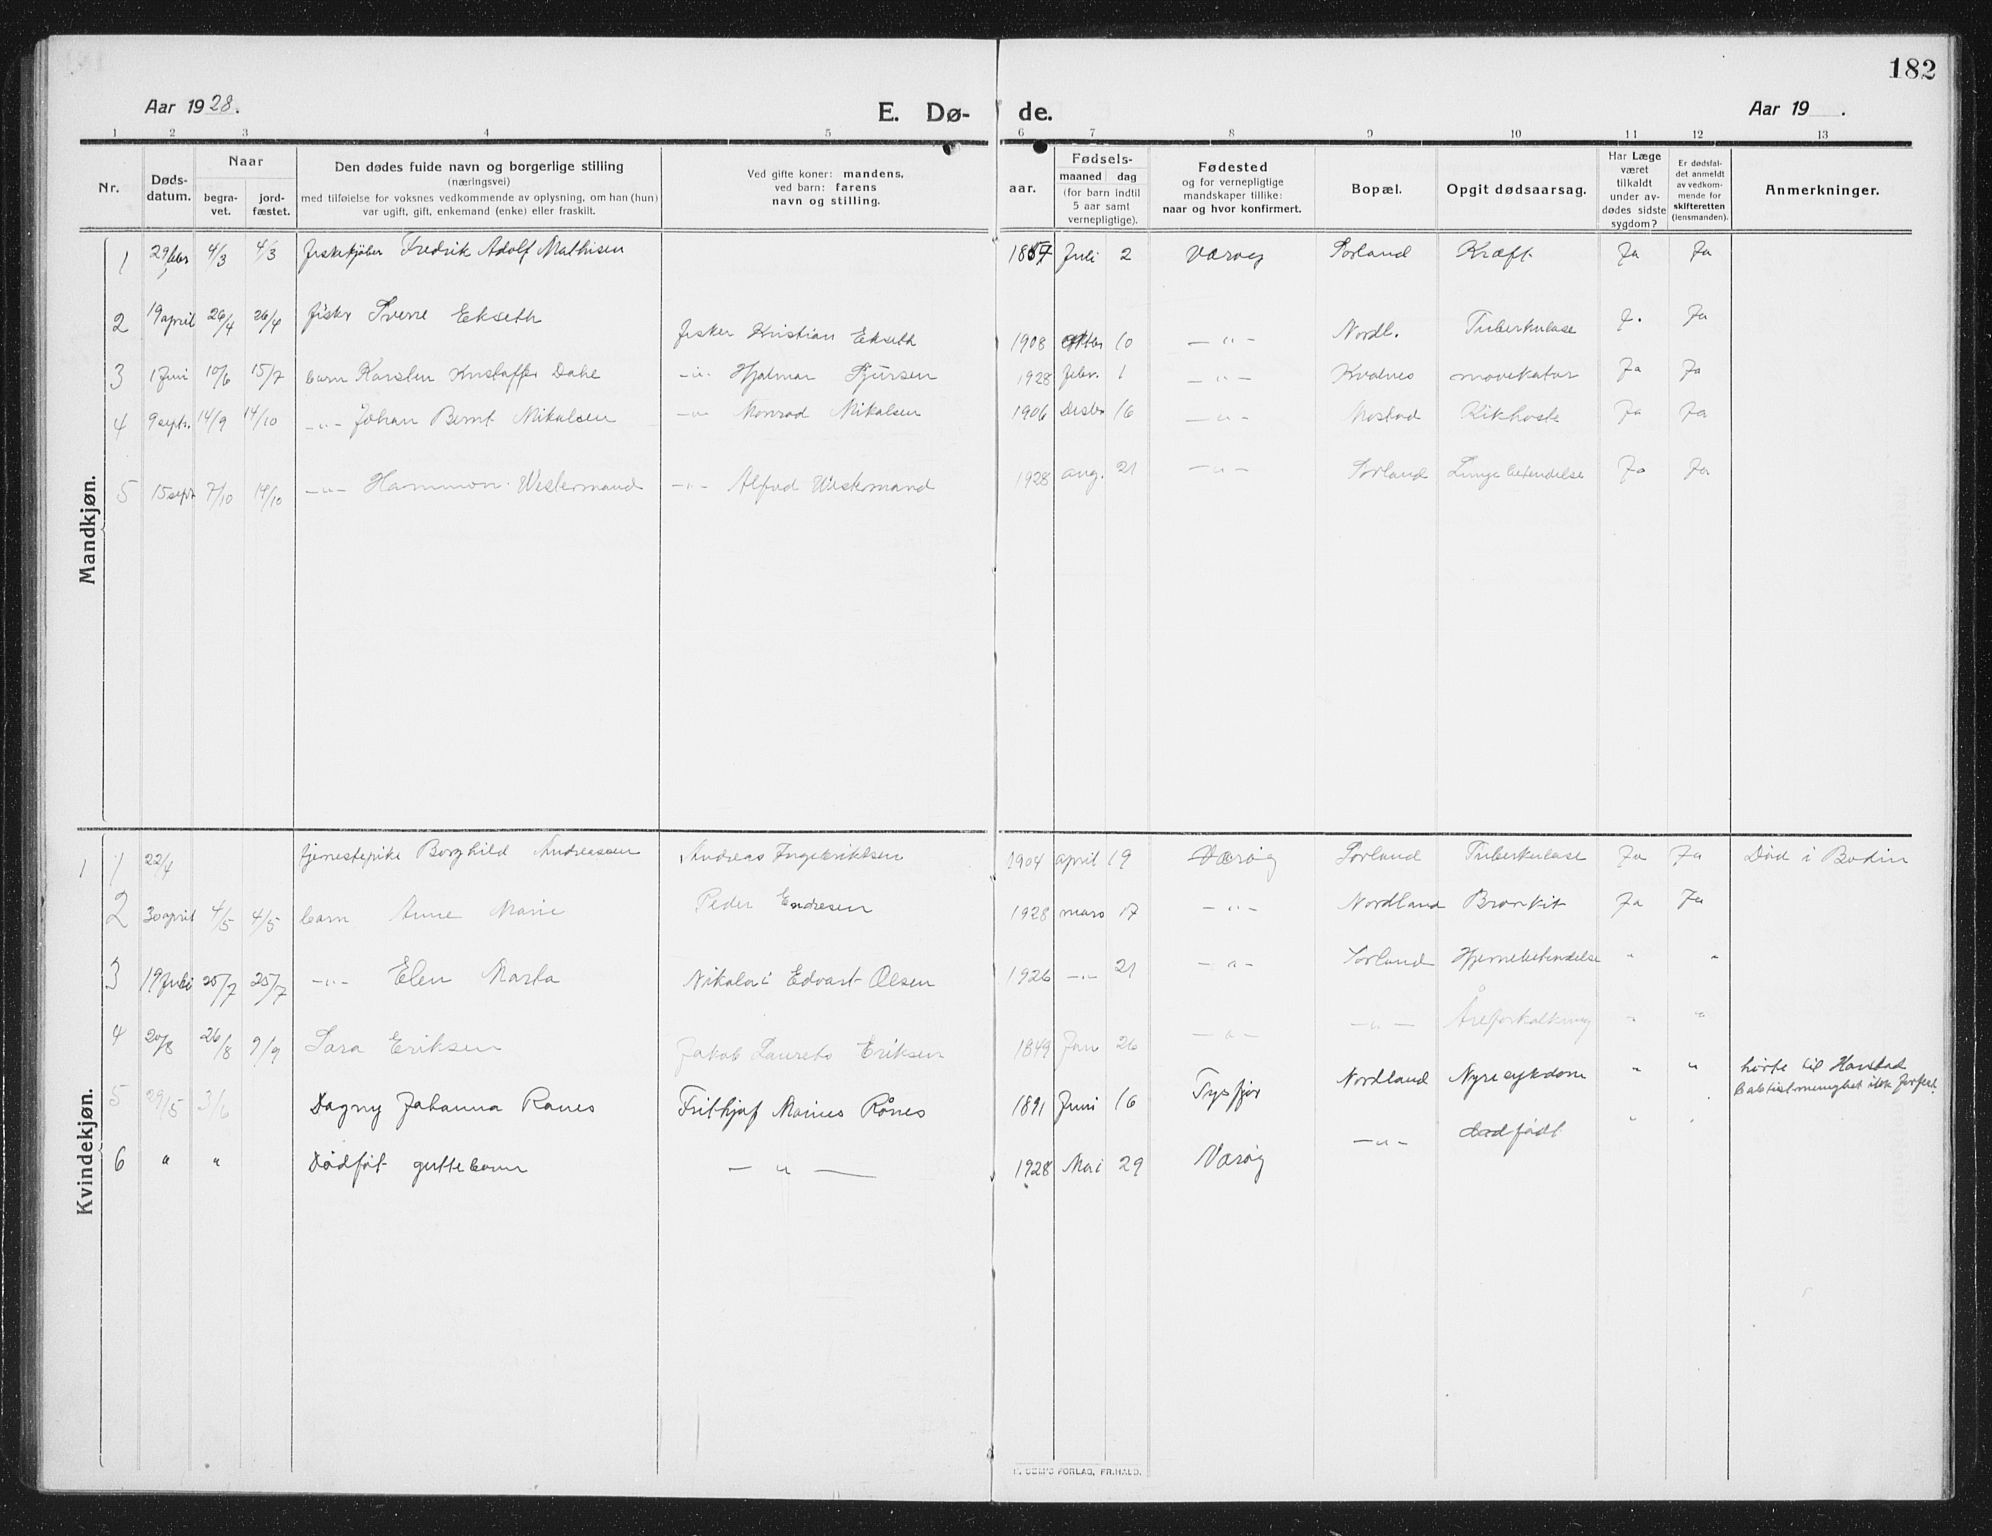 182
Aar 1928.
E. Dø- de.
Aar 19 .
1 2 3 4 5 6 7 8 9 10 11 12 13
Nr.
Døds-
datum.
Naar
begra-
vet.
jord-
fæstet.
Den dødes fulde navn og borgerlige stilling
(næringsvei)
med tilføielse for voksnes vedkommende av oplysning, om han (hun)
var ugift, gift, enkemand (enke) eller fraskilt.
Ved gifte koner: mandens,
ved barn: farens
navn og stilling.
aar.
Fødsels-
maaned dag
(for barn indtil
5 aar samt
vernepligtige).
Fødested
og for vernepligtige
mandskaper tillike:
naar og hvor konfirmert.
Bopæl.
Opgit dødsaarsag.
Har Læge
været
tilkaldt
under av-
dødes sidste
sygdom?
Er dødsfal-
det anmeldt
av vedkom-
mende for
skifteretten
(lensmanden).
Anmerkninger.
Mandkjøn.
1 29 4/3 4/3 fiskekjøber Fredrik Adolf Mathisen Juli 2 Værøy Sørland Kræft Ja Ja
2 19 april 26/4 26/4 fisker Sverre Ekseth fisker Kristian Ekseth 1908 10 -"- Nordl. Tuberkulose J. Ja
3 1 Juni 10/6 15/7 barn Karsten Kristoffer Dahe -"- Hjalmar Sjursen 1928 febr. 1 -"- Kvalnes Ja Ja
4 9 septr. 14/9 14/10 -"- Johan Bernt Mikalsen -"- Konrad Mikalsen 1906 Desbr 16 -"- Mostad Kikhoste Ja Ja
5 15 sept 7/10 14/10 -"- Hammon Westermand -"- Alfred Westermand 1928 aug. 21 -"- Sørland Lungebetendelse Ja Ja
Kvindekjøn.
1 1 22/4 tjenestepike Borghild Andreassen Andreas Ingebriktsen 1904 april 19 Værøy Sørland Tuberkulose Ja Ja Død i Bodin
2 30 april 4/5 4/5 barn Anne Marie Peder Endresen 1928 mars 17 -"- Nordland Bronkit Ja Ja
3 19 Juli 25/7 25/7 -"- Elen Marta Nikolai Edvart Olsen 1926 -"- 21 -"- Sørland Hjernebetendelse " "
4 20/8 26/8 9/9 Sara Eriksen Jakob Laurits Eriksen 1849 Jan 26 -"- -"- Åreforkalkning " "
5 29/5 3/6 Dagny Johanna Rønes Frithjof Marius Rønes 1891 Juni 16 Tysfjor Nordland Nyresykdom " " hørte til Harstad
baptistmenighet ikke jorfest.
6 " " Dødføt guttebarn - " - 1928 Mai 29 Værøy -"- dødfødt "
FORLAG, FR.HALD.